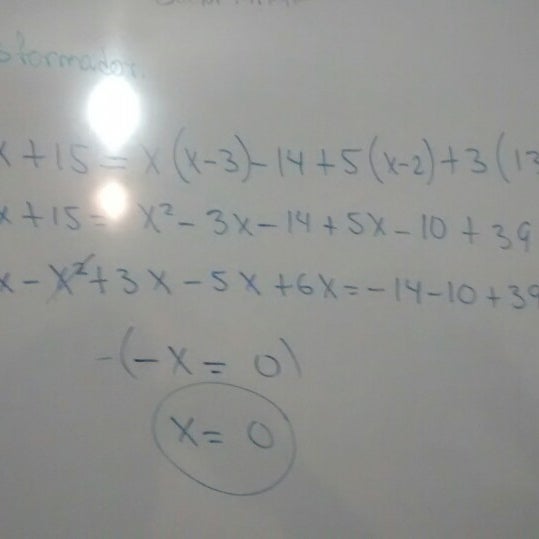 sformador.
x+15=x(x-3)-14+5(x-2)+3(13
x+15= x²-3x-14+5x-10+39
x-x²+3x-5x+6x=-14-10+39
-(-x=0)
x=0